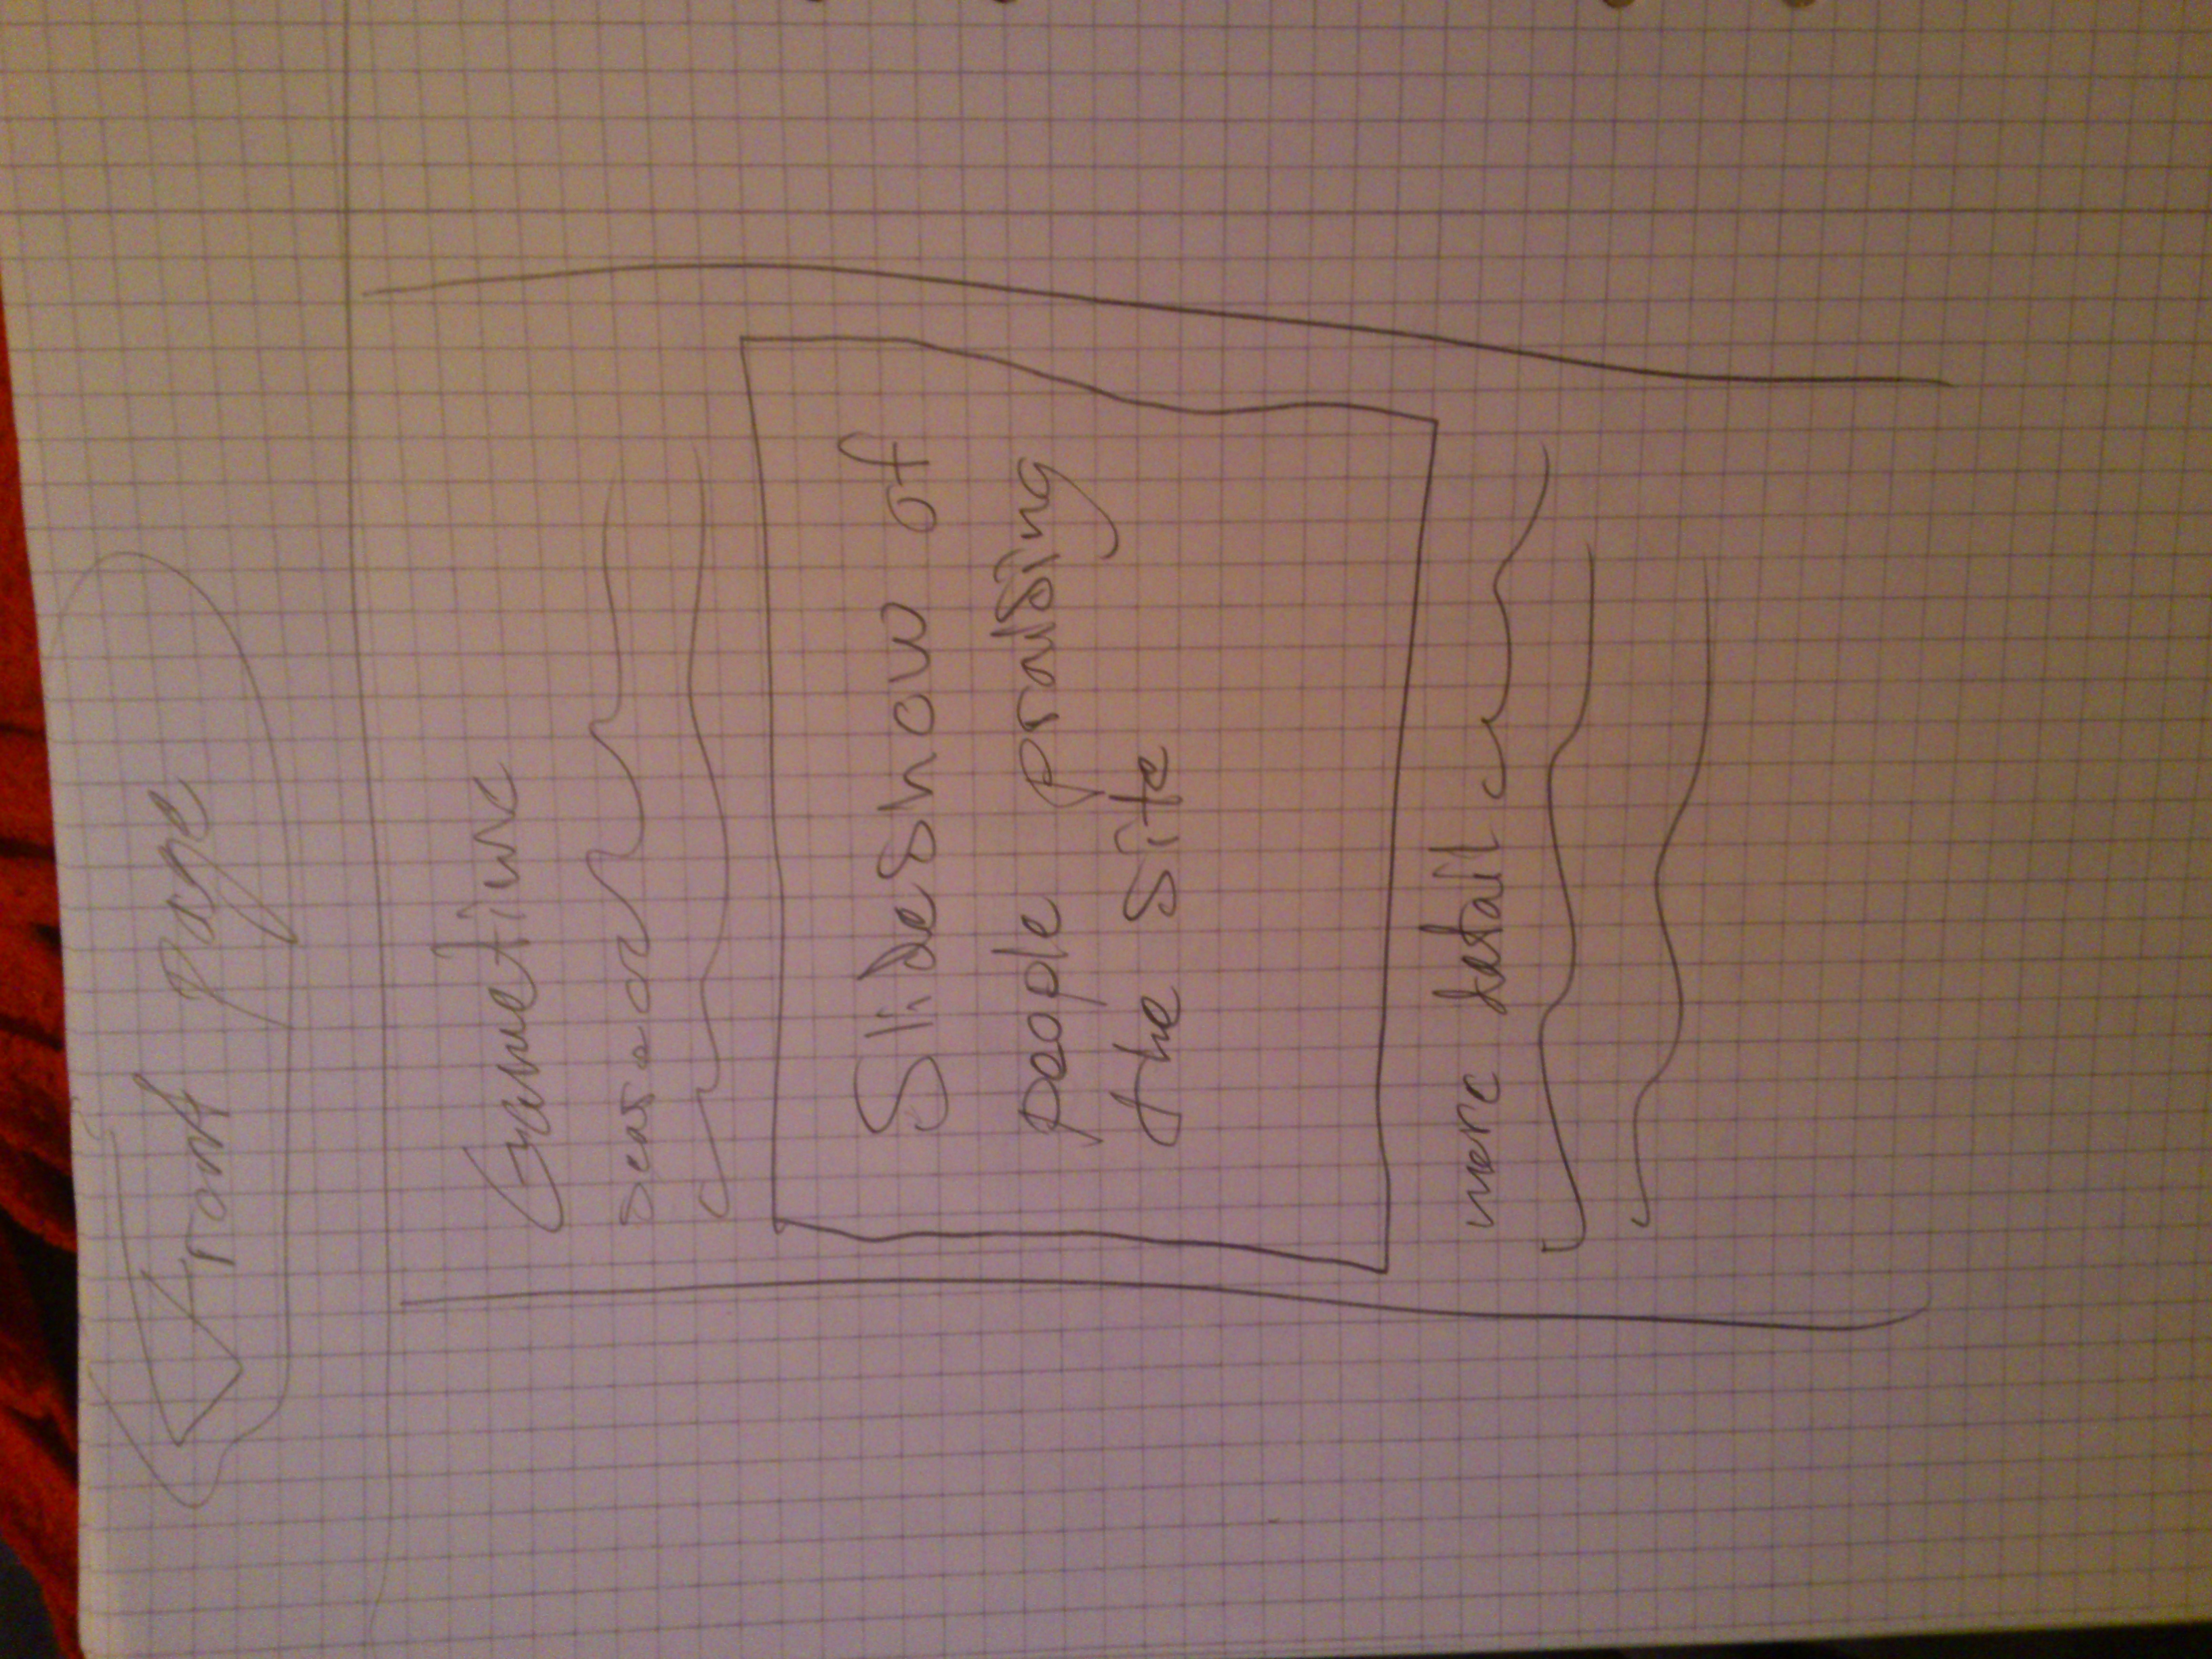 Front page
Gametime
Slideshow of
people praising
the site
more detail